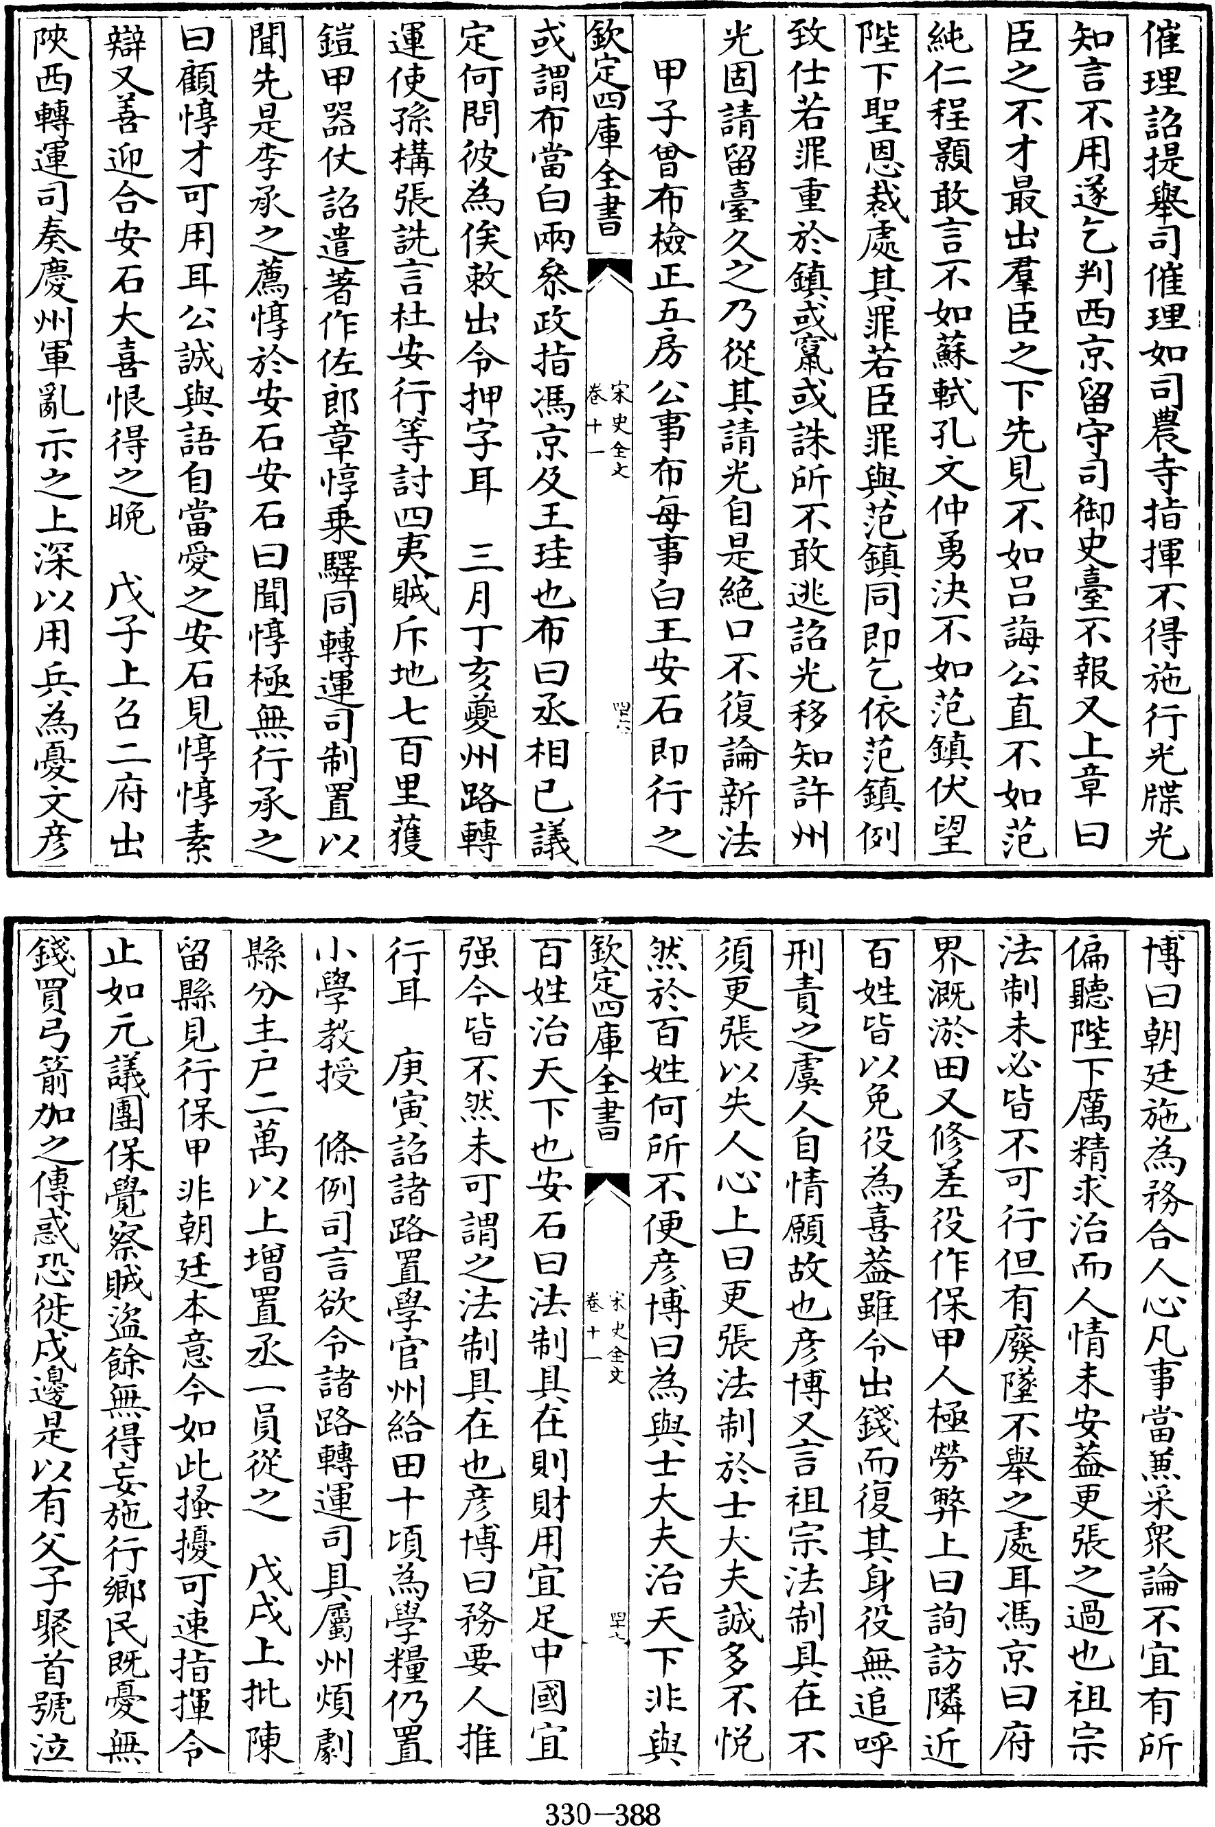 催理詔提舉司催理如司農寺指揮不得施行光牒光
知言不用遂乞判西京留守司御史臺不報又上章曰
臣之不才最出羣臣之下先見不如呂誨公直不如范
純仁程顥敢言不如蘇軾孔文仲勇決不如范鎮伏望
陛下聖恩裁處其罪若臣罪與范鎮同即乞依范鎮例
致仕若罪重於鎮或竄或誅所不敢逃詔光移知許州
光固請留臺久之乃從其請光自是絕口不復論新法
甲子曾布檢正五房公事布每事白王安石即行之
欽定四庫全書
宋史全文
卷十一
四十六
或謂布當白兩叅政指馮京及王珪也布曰丞相已議
定何問彼為俟敕出令押字耳 三月丁亥夔州路轉
運使孫構張詵言杜安行等討四夷賊斥地七百里獲
鎧甲器仗詔遣著作佐郎章惇乗驛同轉運司制置以
聞先是李承之薦惇於安石安石曰聞惇極無行承之
曰顧惇才可用耳公誠與語自當愛之安石見惇惇素
辯又善迎合安石大喜恨得之晩 戊子上召二府出
陜西轉運司奏慶州軍亂示之上深以用兵為憂文彦
博曰朝廷施為務合人心凡事當兼采衆論不宜有所
偏聽陛下厲精求治而人情未安葢更張之過也祖宗
法制未必皆不可行但有廢墜不舉之處耳馮京曰府
界溉淤田又修差役作保甲人極勞弊上曰詢訪隣近
百姓皆以免役為喜葢雖令出錢而復其身役無追呼
刑責之虞人自情願故也彦博又言祖宗法制具在不
須更張以失人心上曰更張法制於士大夫誠多不悦
然於百姓何所不便彦博曰為與士大夫治天下非與
欽定四庫全書
宋史全文
卷十一
四十七
百姓治天下也安石曰法制具在則財用宜足中國宜
强今皆不然未可謂之法制具在也彦博曰務要人推
行耳 庚寅詔諸路置學官州給田十頃為學糧仍置
小學教授 條例司言欲令諸路轉運司具屬州煩劇
縣分主户二萬以上增置丞一員從之 戊戌上批陳
留縣見行保甲非朝廷本意今如此搔擾可速指揮令
止如元議團保覺察賊盜餘無得妄施行鄉民既憂無
錢買弓箭加之傳惑恐徙戍邊是以有父子聚首號泣
330—388